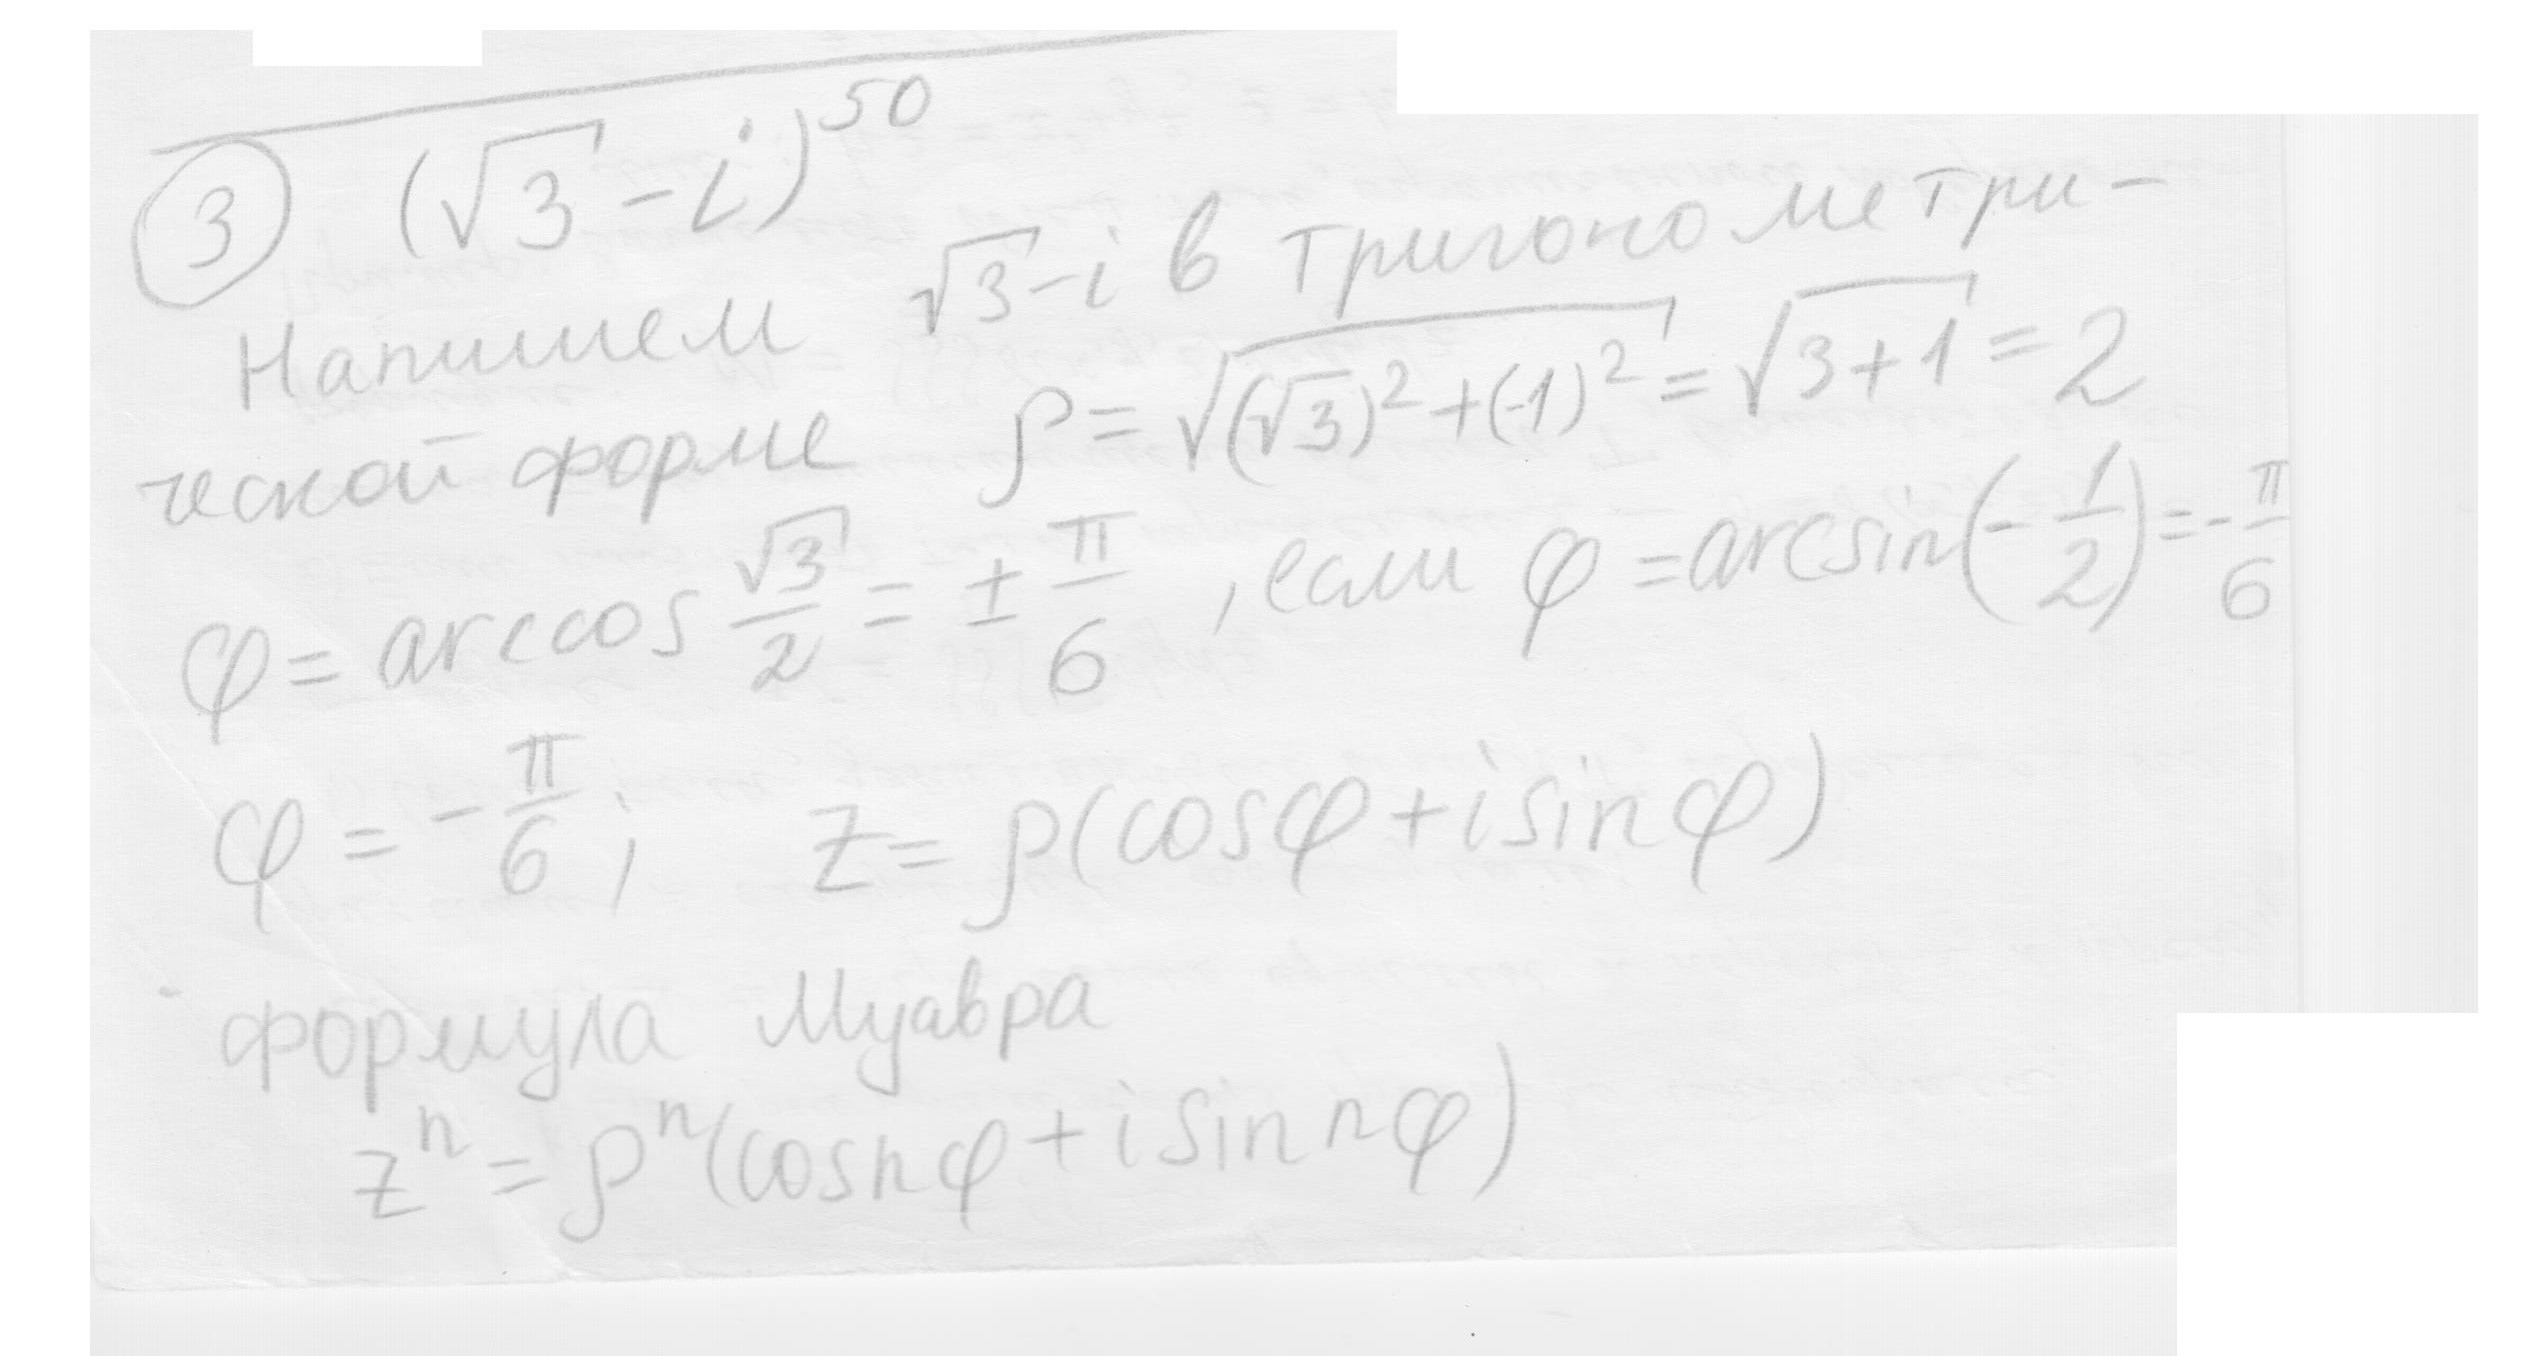 ③ (√3 - i)^50
Напишем √3 - i в тригонометри-
ческой форме ρ = √((√3)² + (-1)²) = √(3+1) = 2
φ = arccos √3/2 = ± π/6 , если φ = arcsin(-1/2) = -π/6
φ = - π/6 ; z = ρ(cosφ + i sinφ)
формула Муавра
z^n = ρ^n(cosnφ + i sin nφ)